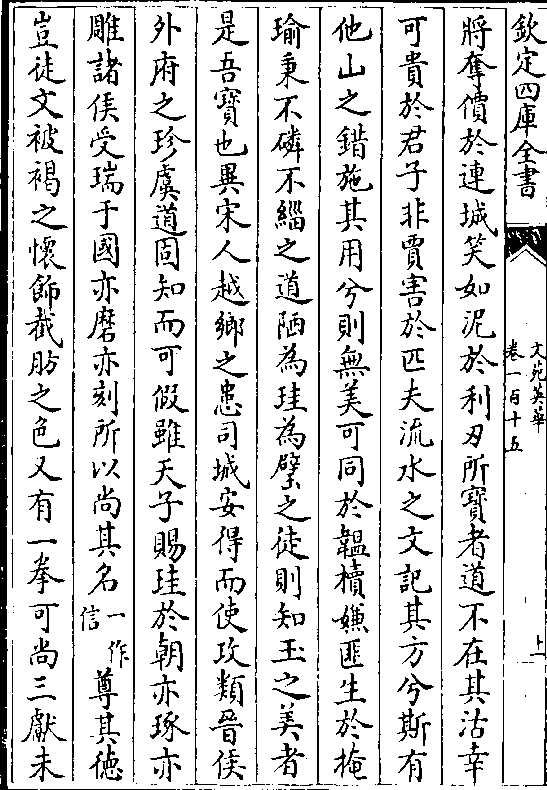 欽定四庫全書
文苑英華
卷一百十五
上
將奪價於連城笑如泥於利刃所寶者道不在其沽幸
可貴於君子非賈害於匹夫流水之文記其方兮斯有
他山之錯施其用兮則無美可同於韞櫝嫌匪生於掩
瑜秉不磷不緇之道陋為珪為璧之徒則知玉之美者
是吾寶也異宋人越鄉之患司城安得而使攻類晉侯
外府之珍虞道固知而可假雖天子賜珪於朝亦琢亦
雕諸侯受瑞于國亦磨亦刻所以尚其名一作信尊其徳
豈徒文被褐之懷飾截肪之色又有一拳可尚三獻未